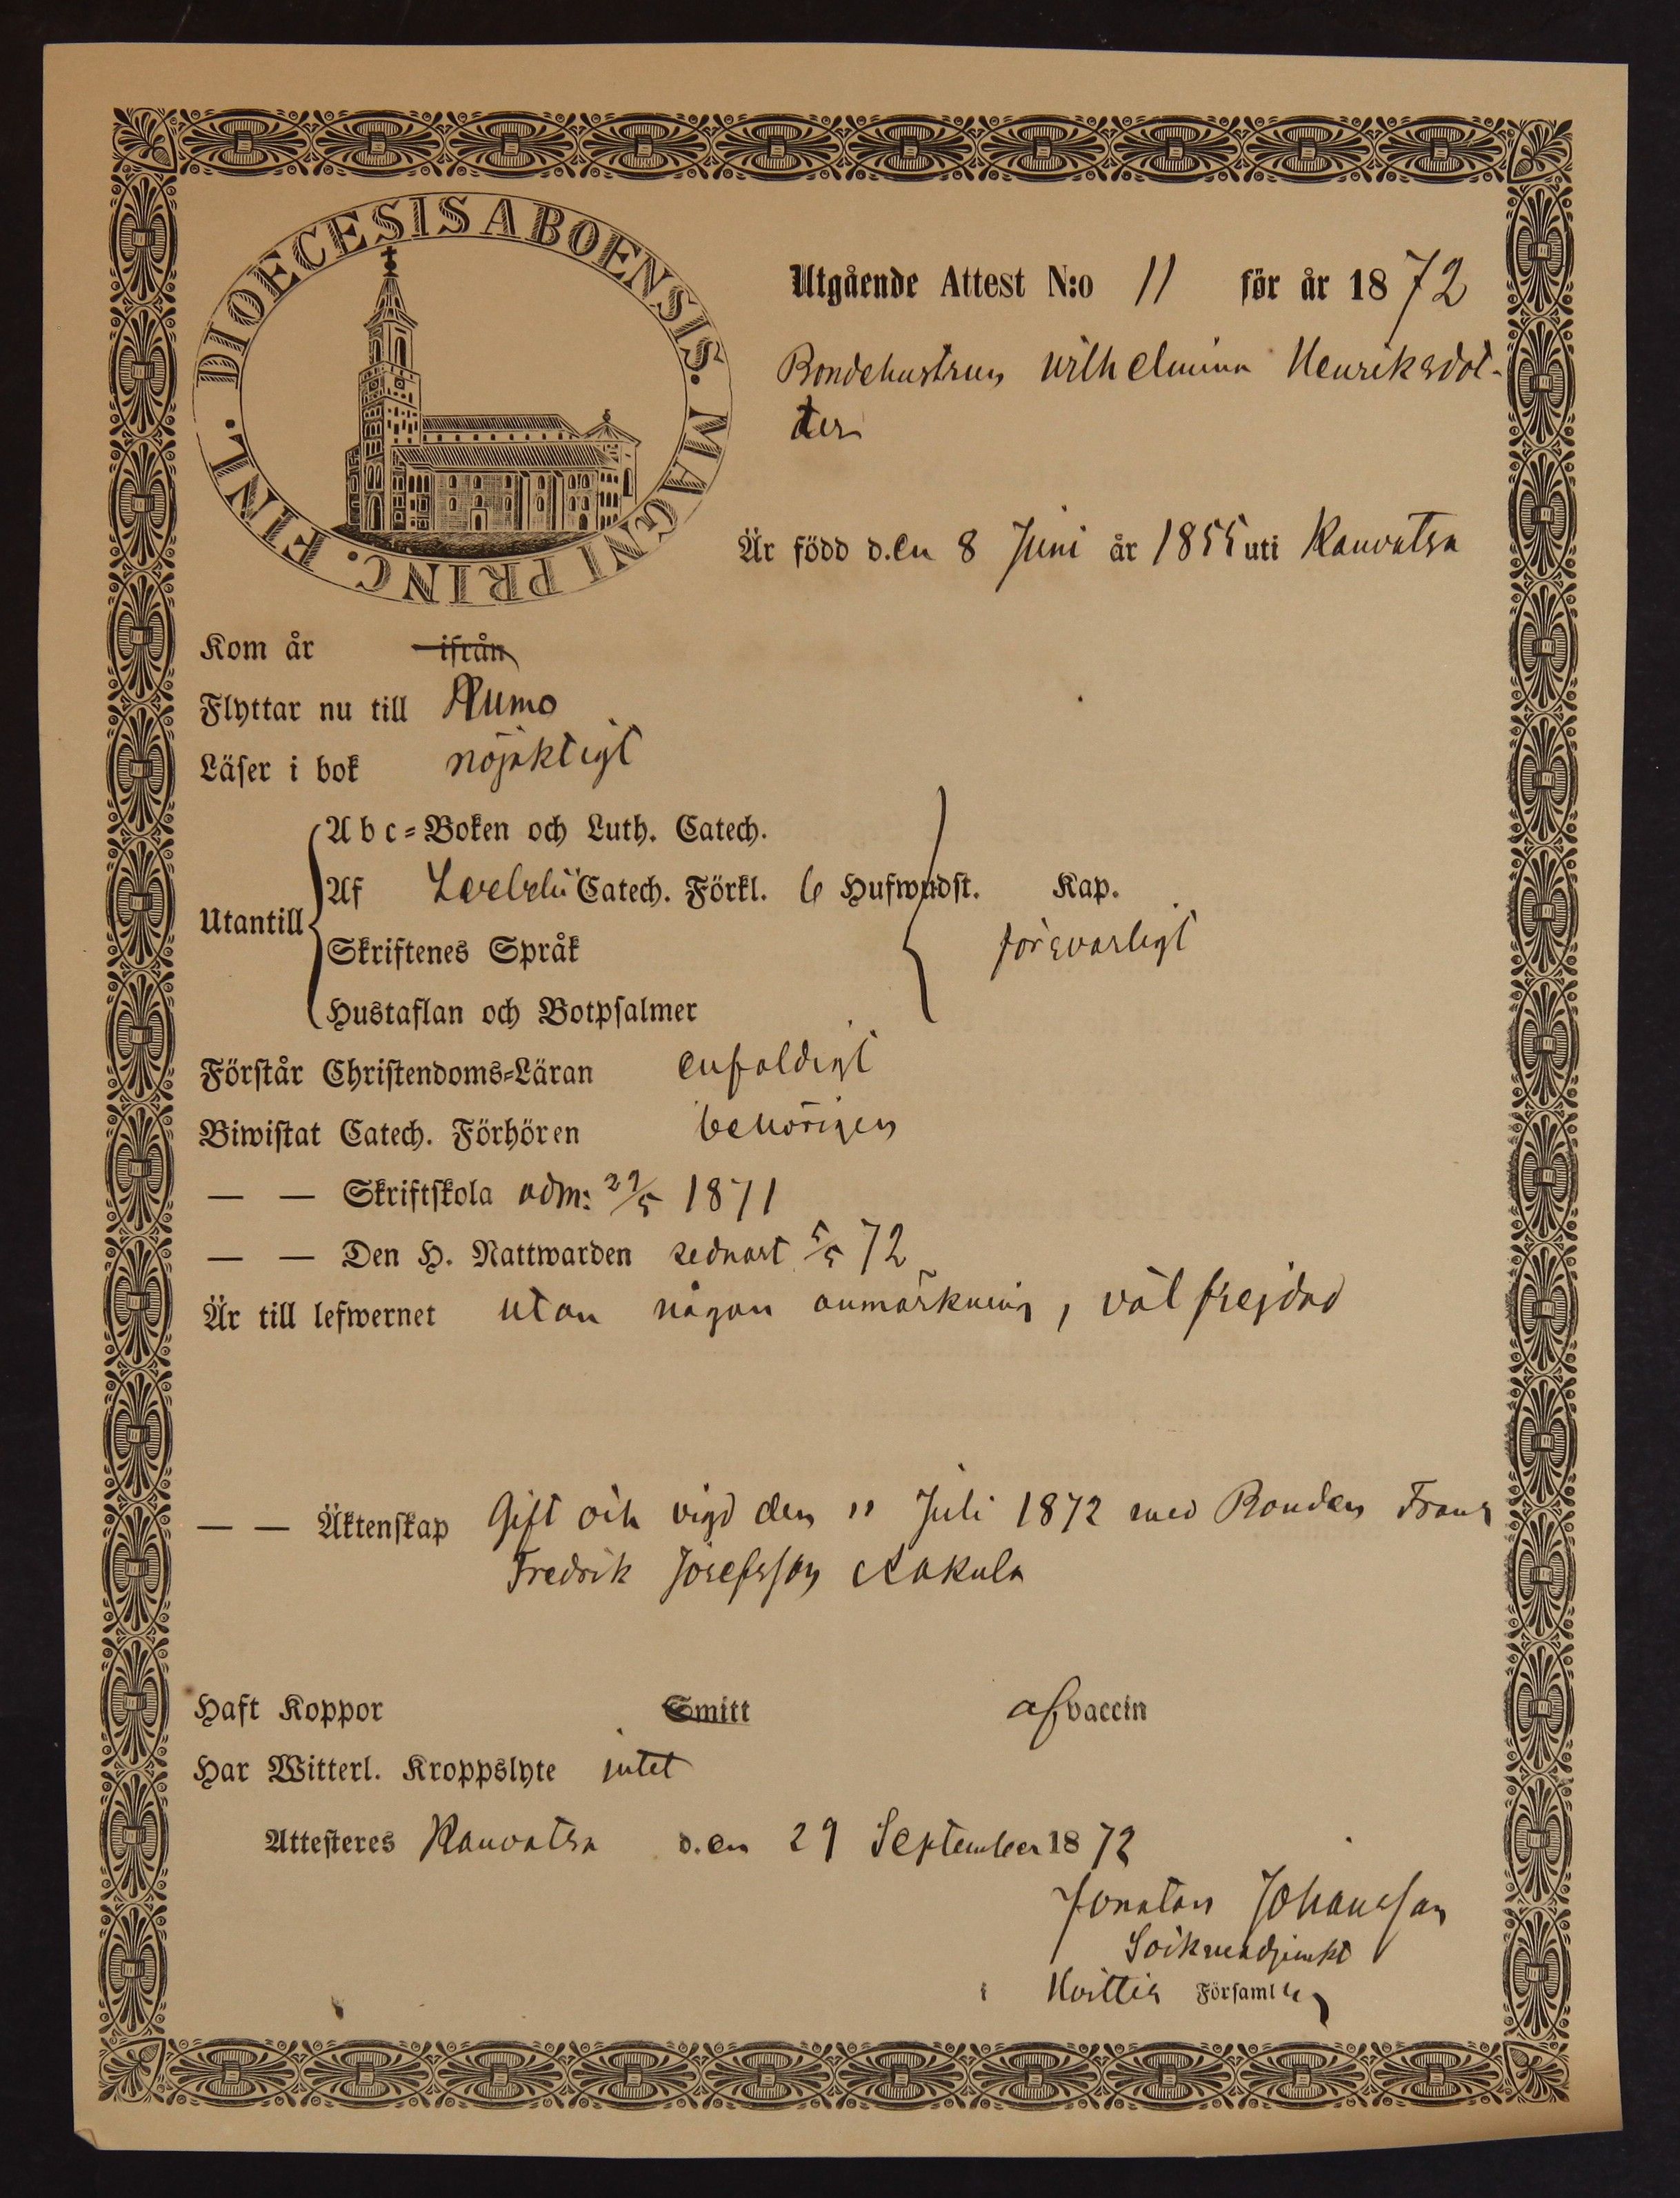 DIOECESIS ABOENSIS. MAGNI PRINC. FINL.
Utgående Attest N:o 11 för år 1872
Bondehustrun Wilhelmina Henriksdot-
ter
Är född d.en 8 Juni år 1855 uti Kauvatsa
Kom år ifrån
Flyttar nu till Kumo
Läser i bok nöjaktigt
Utantill
Abc-Boken och Luth. Catech.
Af Catech. Förkl. 6 Hufwudst. Kap.
Skriftenes Språk försvarligt
Hustaflan och Botpsalmer
Förstår Christendoms-Läran enfaldigt
Biwistat Catech. Förhören behörigen
— — Skriftskola adm: 29/5 1871
— — Den H. Nattwarden sednast 5/5 72
Är till lefwernet utan någon anmärkning, väl frejdad
— — Äktenskap Gift och vigd den 11 Juli 1872 med Bonden Frans
Fredrik Josefsson Kakula
Haft Koppor Smitt af vaccin
Har Witterl. Kroppslyte intet
Attesteres Kauvatsa d.en 29 September 1872
Jonatan Johansson
Sockneadjunkt
i Hvittis Församl